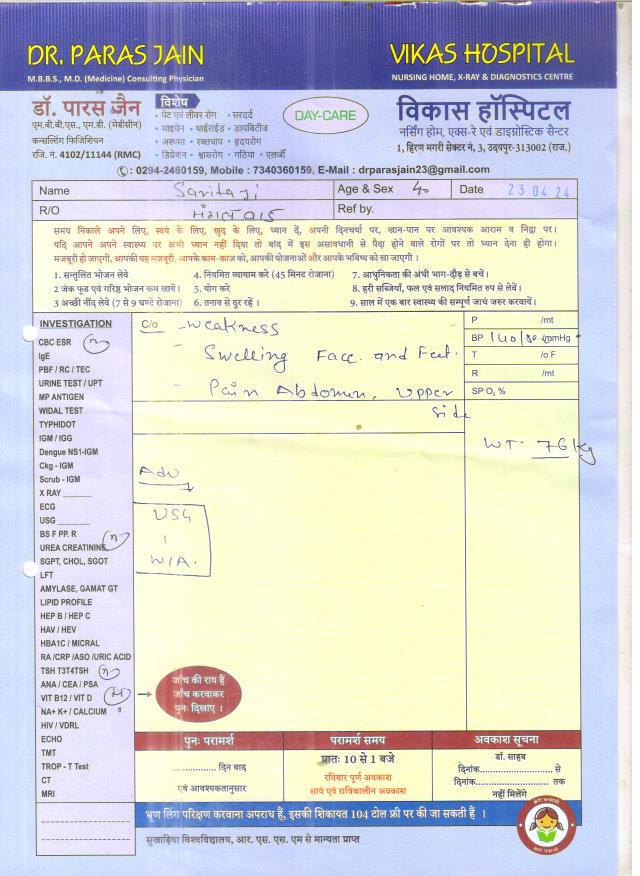 DR. PARAS JAIN
M.B.B.S., M.D. (Medicine) Consulting Physician
VIKAS HOSPITAL
NURSING HOME, X-RAY & DIAGNOSTICS CENTRE
डॉ. पारस जैन
एम.बी.बी.एस., एम.डी. (मेडीसीन)
कन्सल्टिंग फिजिशियन
रजि. नं. 4102/11144 (RMC)
विशेष
• पेट एवं लीवर रोग • सरदर्द
• माइग्रेन • थाईराईड • डायबिटीज
• अस्थमा • रक्तचाप • हृदयरोग
• डिप्रेशन • श्वासरोग • गठिया • एलर्जी
DAY-CARE
विकास हॉस्पिटल
नर्सिंग होम, एक्स-रे एवं डाइग्नोस्टिक सैन्टर
1, हिरण मगरी सेक्टर नं, 3, उदयपुर-313002 (राज.)
: 0294-2460159, Mobile : 7340360159, E-Mail : drparasjain23@gmail.com
Name Sarita Ji Age & Sex 40 Date 23 04 24
R/O Ref by.
समय निकाले अपने लिए, स्वयं के लिए, खुद के लिए, ध्यान दें, अपनी दिनचर्या पर, खान-पान पर आवश्यक आराम व निद्रा पर।
यदि आपने अपने स्वास्थ्य पर अभी ध्यान नहीं दिया तो बाद में इस असावधानी से पैदा होने वाले रोगों पर तो ध्यान देना ही होगा।
मजबूरी हो जाएगी, आपकी यह मजबूरी, आपके काम-काज को, आपकी योजनाओं और आपके भविष्य को खा जाएगी।
1. सन्तुलित भोजन लेवे 4. नियमित व्यायाम करे (45 मिनट रोजाना) 7. आधुनिकता की अंधी भाग-दौड़ से बचें।
2 जंक फूड एवं गरिष्ठ भोजन कम खायें। 5. योग करे 8. हरी सब्जियाँ, फल एवं सलाद नियमित रुप से लेवें।
3 अच्छी नींद लेवे (7 से 9 घण्टे रोजाना) 6. तनाव से दूर रहें। 9. साल में एक बार स्वास्थ्य की सम्पूर्ण जाचं जरुर करवायें।
INVESTIGATION
CBC ESR
IgE
PBF / RC / TEC
URINE TEST / UPT
MP ANTIGEN
WIDAL TEST
TYPHIDOT
IGM / IGG
Dengue NS1-IGM
Ckg - IGM
Scrub - IGM
X RAY ______
ECG
USG ______
BS F PP. R
UREA CREATININE,
SGPT, CHOL, SGOT
LFT
AMYLASE, GAMAT GT
LIPID PROFILE
HEP B / HEP C
HAV / HEV
HBA1C / MICRAL
RA /CRP /ASO /URIC ACID
TSH T3T4TSH
ANA / CEA / PSA
VIT B12 / VIT D
NA+ K+ / CALCIUM
HIV / VDRL
ECHO
TMT
TROP - T Test
CT
MRI
C/o - Weakness
- Swelling Face and Feet.
- Pain Abdomen, Upper
side
P /mt
BP 140/80 /mmHg
T /o F
R /mt
SP O, %
WT. 76 Kg
Adv
USG
W/A.
जाँच की राय हैं
जाँच करवाकर
पुनः दिखाए ।
पुनः परामर्श
................ दिन बाद
एवं आवश्यकतानुसार
परामर्श समय
प्रातः 10 से 1 बजे
रविवार पूर्ण अवकाश
सायं एवं रात्रिकालीन अवकाश
अवकाश सूचना
डॉ. साहब
दिनांक.................... से
दिनांक.................... तक
नहीं मिलेंगे
भ्रूण लिंग परिक्षण करवाना अपराध हैं, इसकी शिकायत 104 टोल फ्री पर की जा सकती हैं ।
सुखाड़िया विश्वविद्यालय, आर. एस. एस. एम से मान्यता प्राप्त